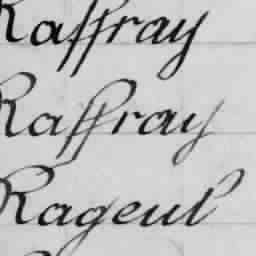 Raffray
Raffray
Rageul